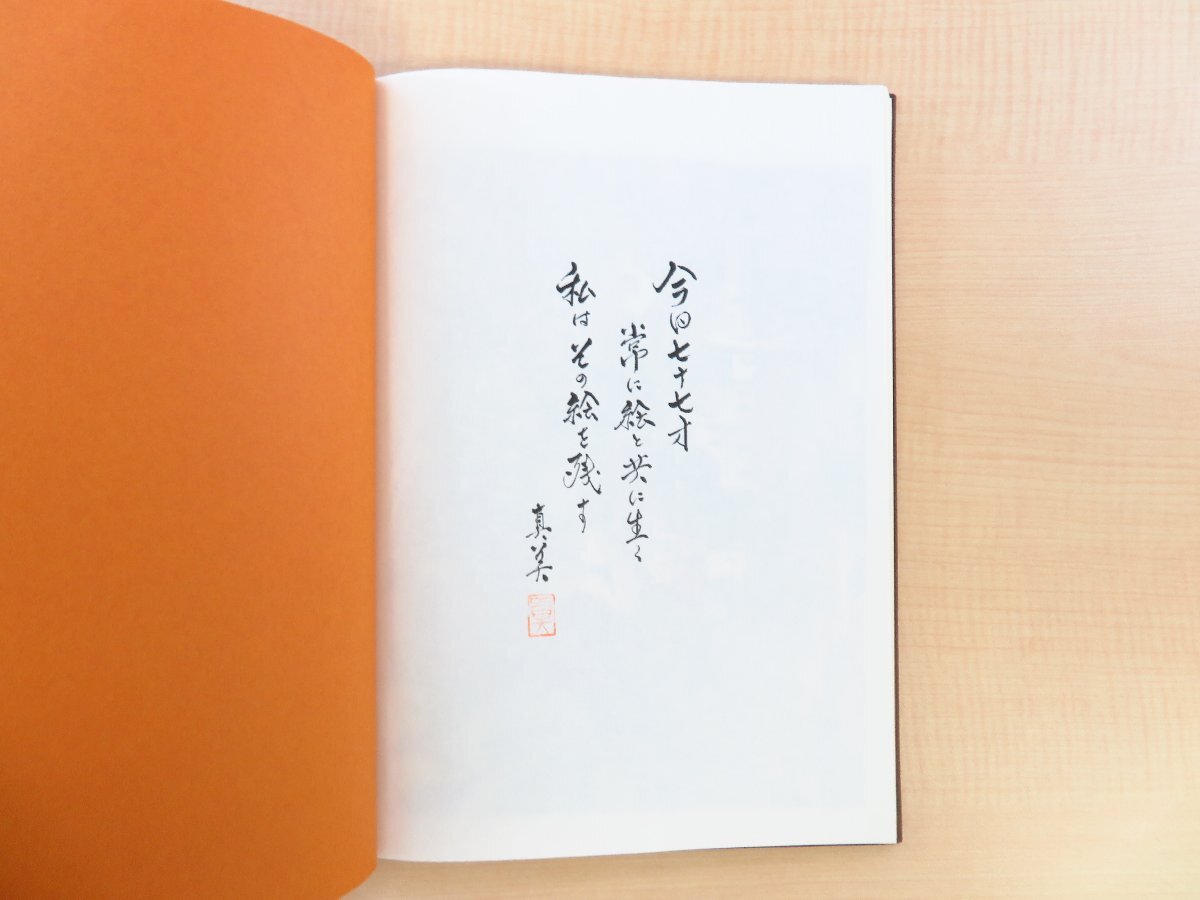 今日七十七才
常に絵と共に生く
私はその絵を残す
真美